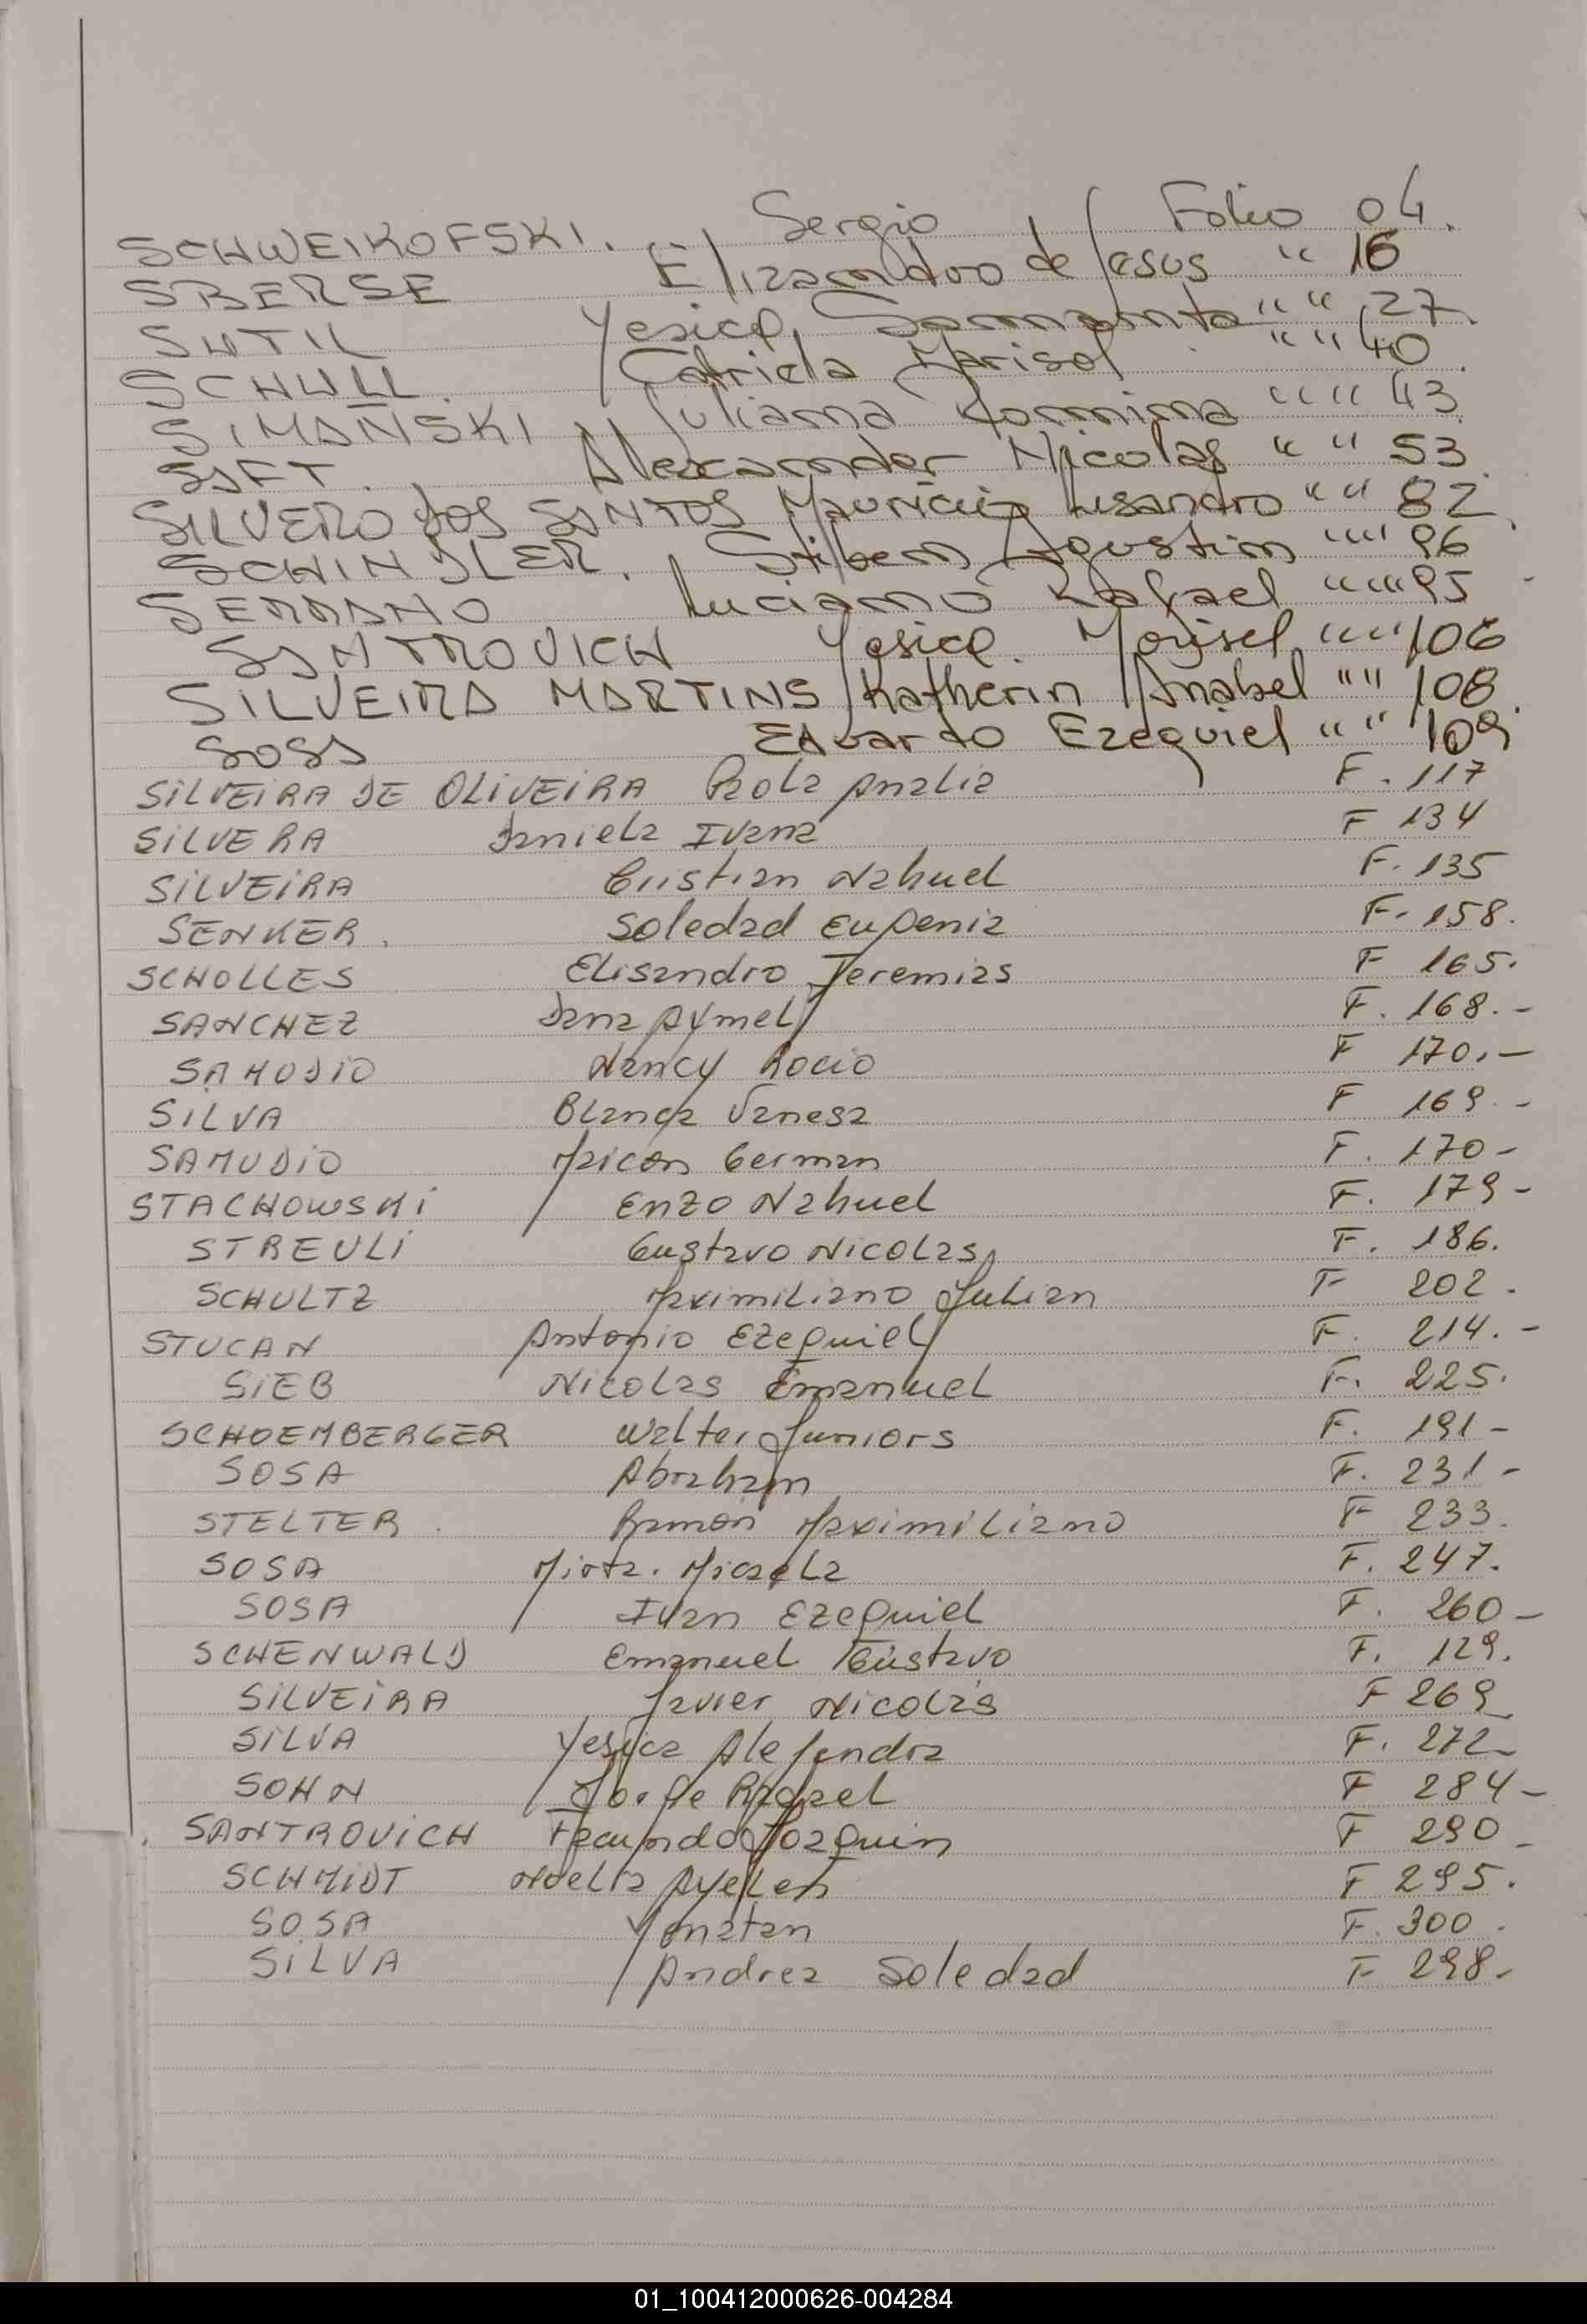 SCHWEIKOFSKI. Sergio Folio 04.
SBERSE Elizandro de Jesus " 16
SUTIL Yesica Samanta " " 27
SCHULL. Gabriela Marisol " " 40
SIMAÑSKI Juliana Romina " " 43
SAFT. Alexander Nicolas " " 53
SILVERO DOS SANTOS Mauricio Lisandro " " 82
SCHINDLER. Stiben Agustin " " 96
SERRANO Luciano Rafael " " 95
SANTROVICH Yesica Marisel " " 106
SILVEIRA MARTINS Katherin Anabel " " 108
SOSA Eduardo Ezequiel " " 109
SILVEIRA DE OLIVEIRA Paola Analia F. 117
SILVERA Daniela Ivana F 134
SILVEIRA Cristian Nahuel F. 135
SENKER. Soledad Eugenia F. 158.
SCHOLLES Elisandro Jeremias F 165.
SANCHEZ Dana Aymel F. 168.-
SAMUDIO Nancy Rocio F 170.-
SILVA Blanca Vanesa F 169.-
SAMUDIO Maicon German F. 170-
STACHOWSKI Enzo Nahuel F. 179-
STREULI Gustavo Nicolas F. 186.
SCHULTZ Maximiliano Julian F 202.
STUCAN Antonio Ezequiel F. 214.-
SIEB Nicolas Emanuel F. 225.
SCHOEMBERGER Walter Juniors F. 191-
SOSA Abraham F. 231-
STELTER. Ramón Maximiliano F 233.
SOSA Mirta. Micaela F. 247.
SOSA Ivan Ezequiel F. 260-
SCHENWALD Emanuel Gustavo F. 129.
SILVEIRA Javier Nicolás F 269
SILVA Yesica Alejandra F. 272-
SOHN Jorge Rafael F 284-
SANTROVICH Facundo Joaquin F 290-
SCHMIDT Noelia Ayelen F 295.
SOSA Yonatan F. 300.
SILVA Andrea Soledad F 298-
01_100412000626-004284